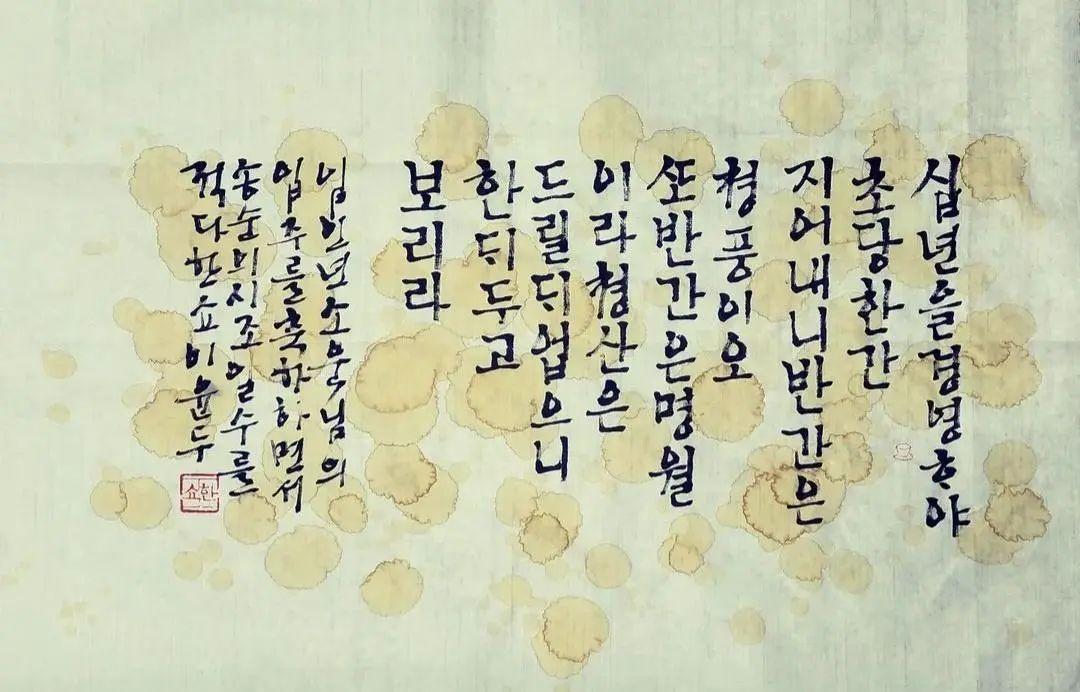 십년을경영ᄒᆞ야
초당한간
지어내니반간은
청풍이오
ᄯᅩ반간은명월
이라청산은
드릴ᄃᆡ업으니
한ᄃᆡ두고
보리라
임인년소운님의
입주를축하하면서
송순의시조일수를
적다한쇼이윤두
한쇼